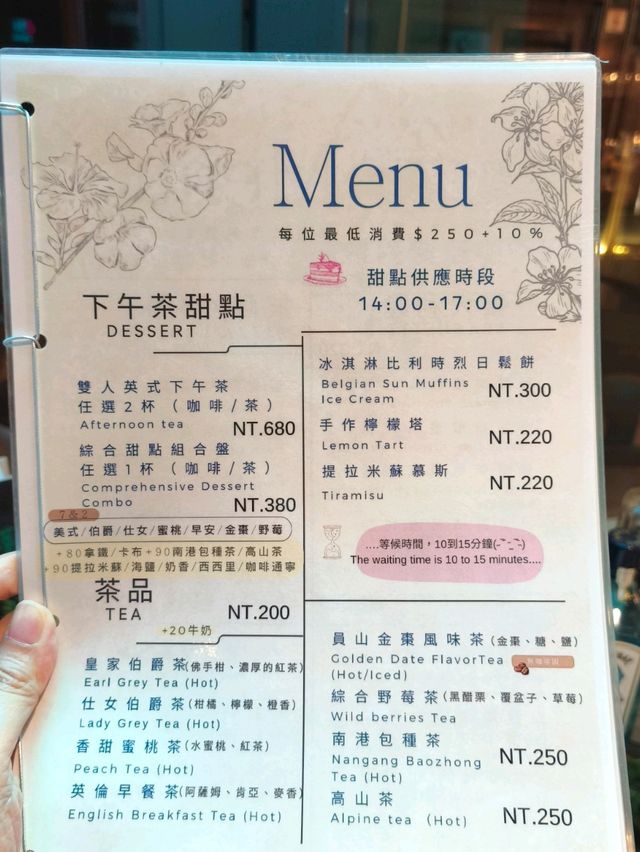 Menu
每位最低消費$250+10%
甜點供應時段
14:00-17:00
下午茶甜點
DESSERT
雙人英式下午茶
任選2杯（咖啡/茶）
Afternoon tea
NT.680
綜合甜點組合盤
任選1杯（咖啡/茶）
Comprehensive Dessert
Combo
NT.380
7選2
美式/伯爵/仕女/蜜桃/早安/金棗/野莓
+80拿鐵/卡布+90南港包種茶/高山茶
+90提拉米蘇/海鹽/奶香/西西里/咖啡通寧
冰淇淋比利時烈日鬆餅
Belgian Sun Muffins
Ice Cream
NT.300
手作檸檬塔
Lemon Tart
NT.220
提拉米蘇慕斯
Tiramisu
NT.220
....等候時間，10到15分鐘(-‾_‾-)
The waiting time is 10 to 15 minutes....
茶品
TEA
NT.200
+20牛奶
皇家伯爵茶(佛手柑、濃厚的紅茶)
Earl Grey Tea (Hot)
仕女伯爵茶(柑橘、檸檬、橙香)
Lady Grey Tea (Hot)
香甜蜜桃茶(水蜜桃、紅茶)
Peach Tea (Hot)
英倫早餐茶(阿薩姆、肯亞、麥香)
English Breakfast Tea (Hot)
員山金棗風味茶(金棗、糖、鹽)
Golden Date FlavorTea
(Hot/Iced)
綜合野莓茶(黑醋栗、覆盆子、草莓)
Wild berries Tea
南港包種茶
Nangang Baozhong
Tea (Hot)
NT.250
高山茶
Alpine tea (Hot)
NT.250